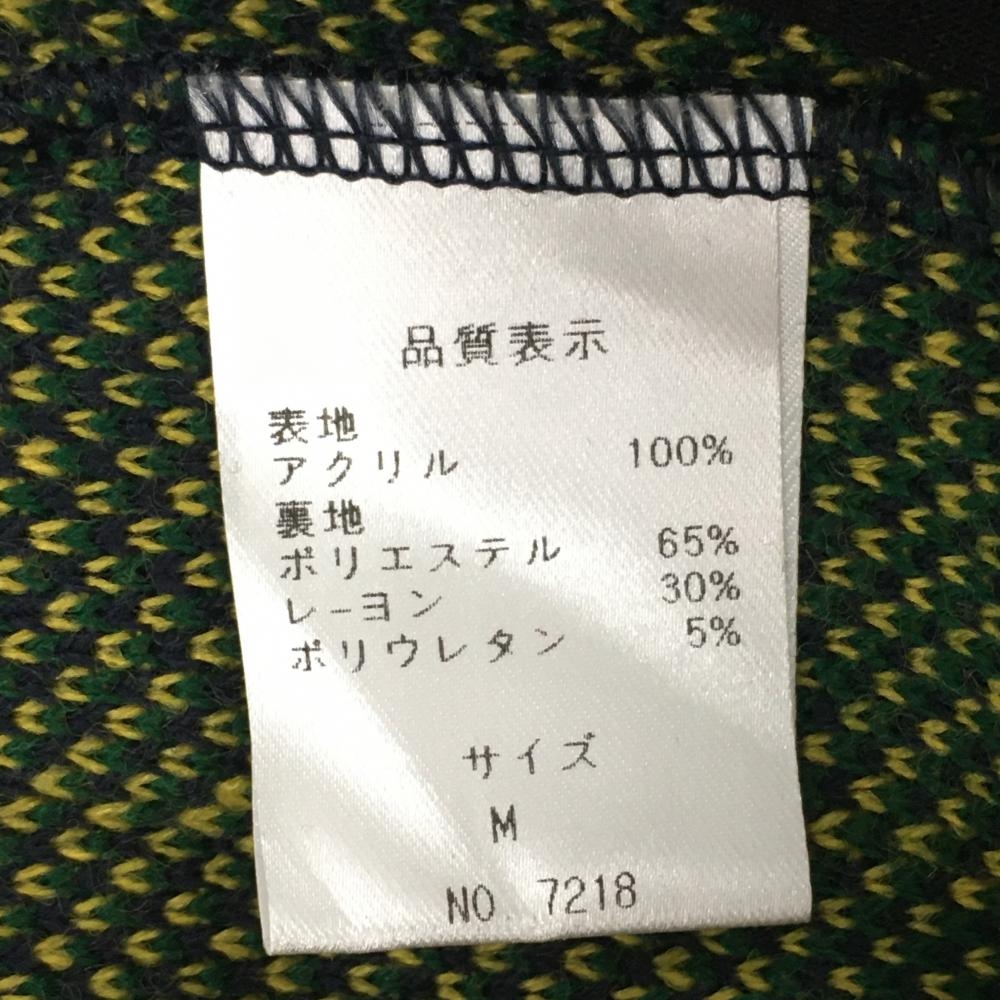 品質表示
表地
アクリル 100%
裏地
ポリエステル 65%
レーヨン 30%
ポリウレタン 5%
サイズ
M
NO 7218